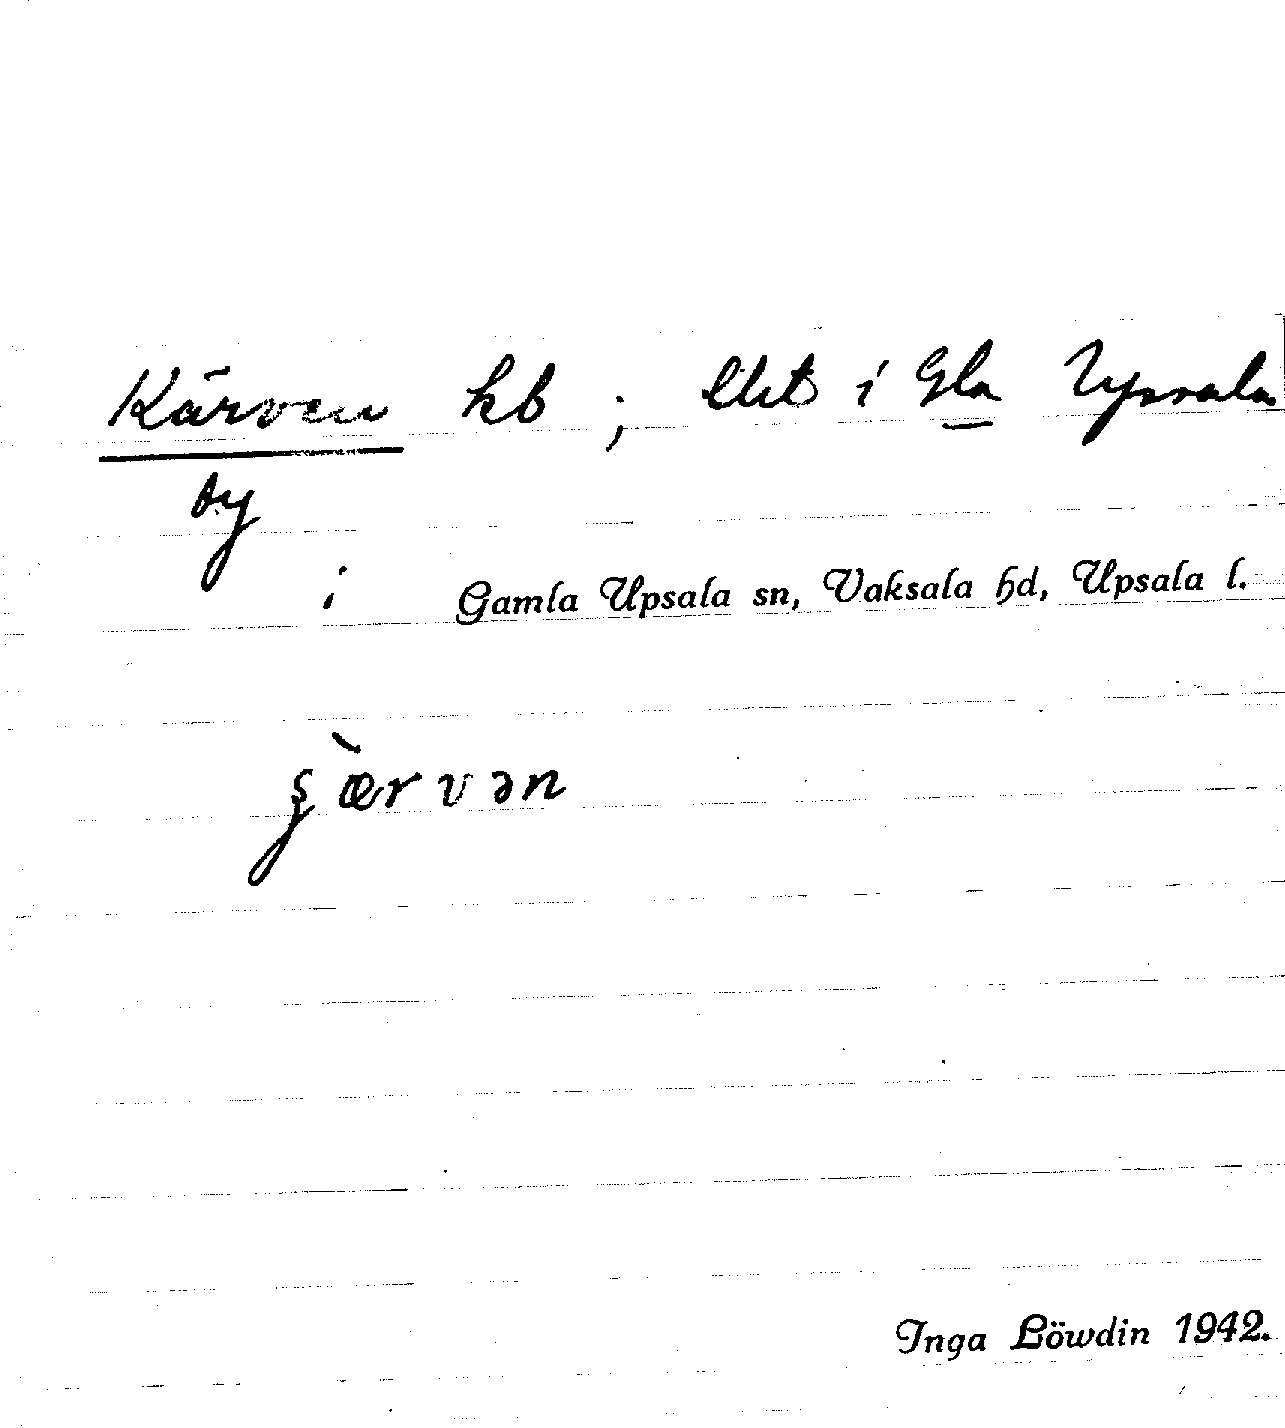 Kärven hb ; Utl i Gla Upsala
by
i Gamla Upsala sn, Vaksala hd, Upsala l.
ʂæ̀rvən
Inga Löwdin 1942.